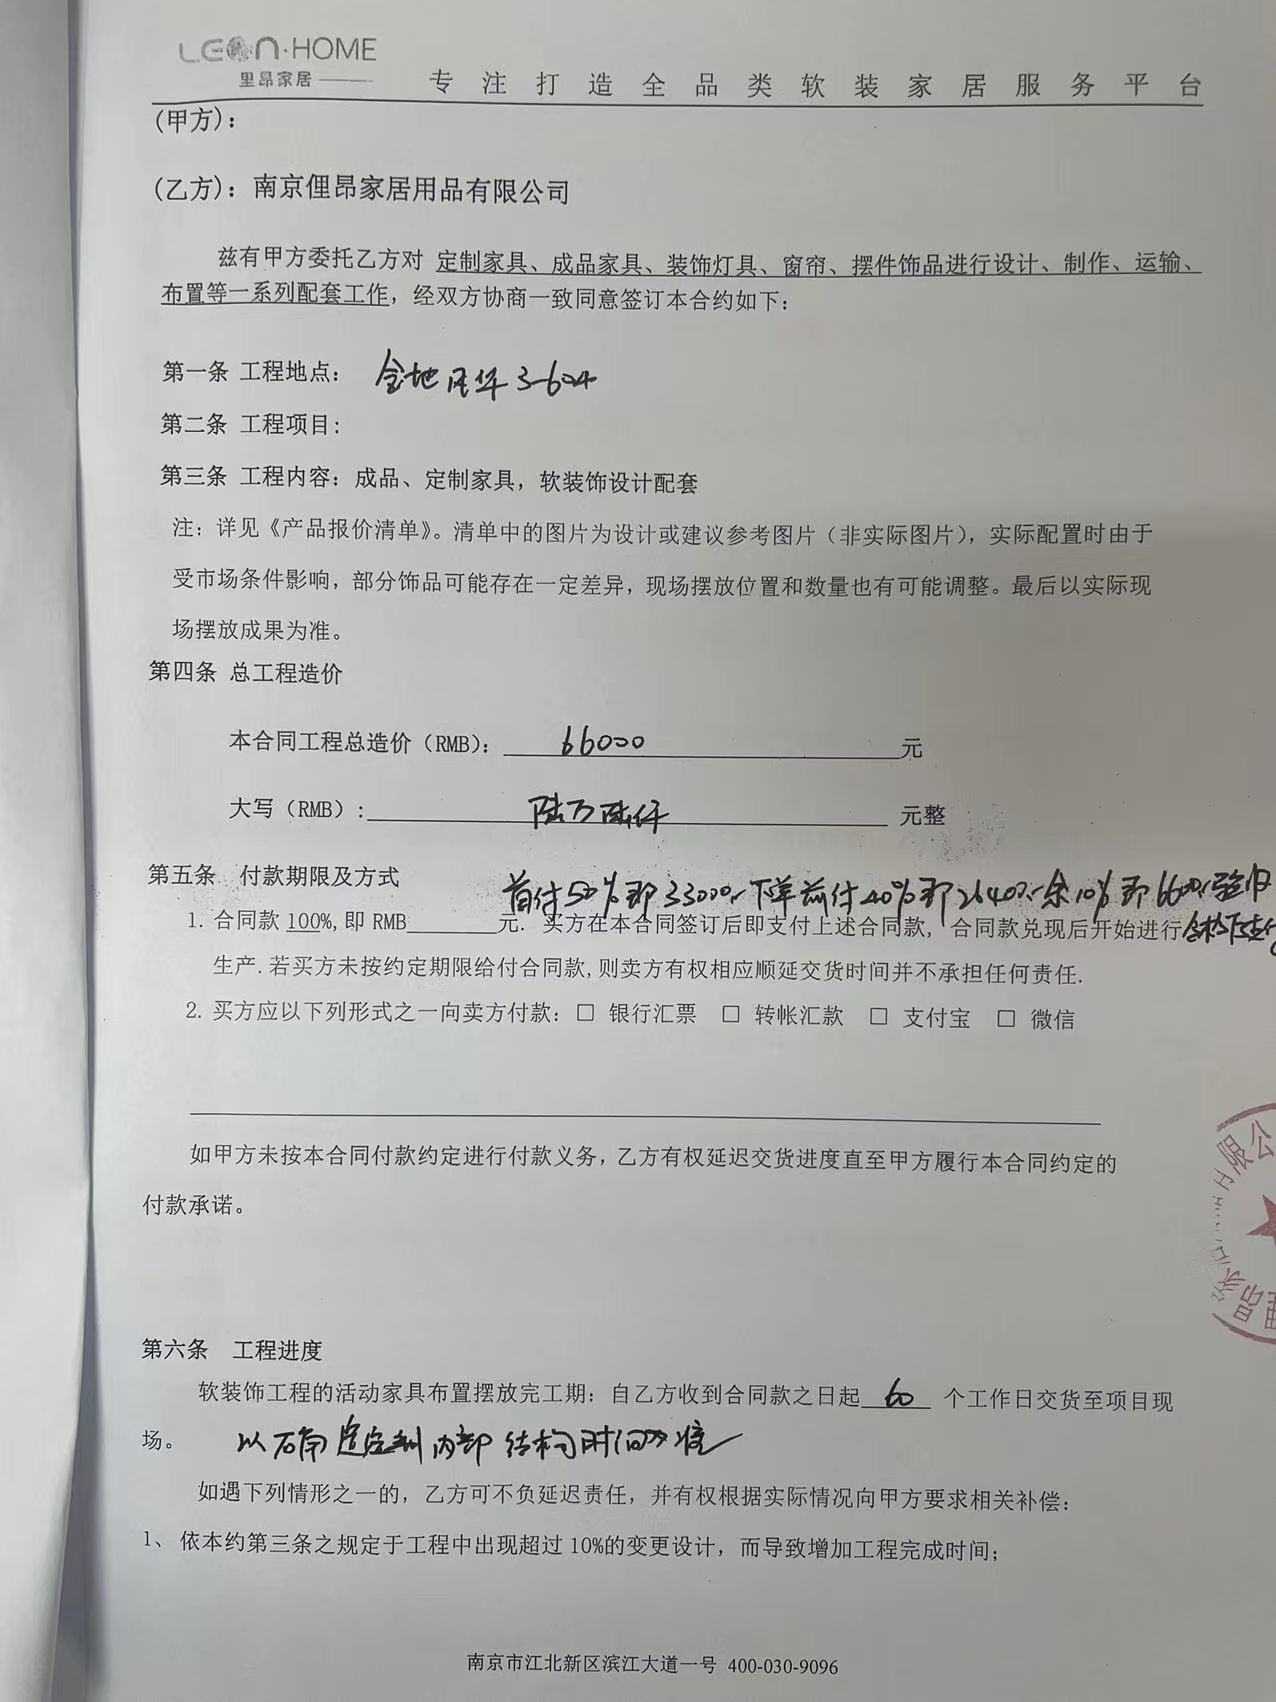 LEON·HOME
里昂家居
专注打造全品类软装家居服务平台
(甲方)：
(乙方)：南京俚昂家居用品有限公司
兹有甲方委托乙方对 定制家具、成品家具、装饰灯具、窗帘、摆件饰品进行设计、制作、运输、
布置等一系列配套工作，经双方协商一致同意签订本合约如下：
第一条 工程地点： 金地风华3-604
第二条 工程项目：
第三条 工程内容：成品、定制家具，软装饰设计配套
注：详见《产品报价清单》。清单中的图片为设计或建议参考图片（非实际图片），实际配置时由于
受市场条件影响，部分饰品可能存在一定差异，现场摆放位置和数量也有可能调整。最后以实际现
场摆放成果为准。
第四条 总工程造价
本合同工程总造价（RMB）： 66000 元
大写（RMB）： 陆万陆仟 元整
第五条 付款期限及方式
首付50%即33000,下单前付40%即26400,余10%即6600,验收
合格后支付
1. 合同款 100%, 即 RMB______元. 买方在本合同签订后即支付上述合同款, 合同款兑现后开始进行
生产. 若买方未按约定期限给付合同款, 则卖方有权相应顺延交货时间并不承担任何责任.
2. 买方应以下列形式之一向卖方付款：□ 银行汇票 □ 转帐汇款 □ 支付宝 □ 微信
如甲方未按本合同付款约定进行付款义务，乙方有权延迟交货进度直至甲方履行本合同约定的
付款承诺。
第六条 工程进度
软装饰工程的活动家具布置摆放完工期：自乙方收到合同款之日起 60 个工作日交货至项目现
场。 以确定定制内部结构时间为准
如遇下列情形之一的，乙方可不负延迟责任，并有权根据实际情况向甲方要求相关补偿：
1、 依本约第三条之规定于工程中出现超过 10%的变更设计，而导致增加工程完成时间；
南京市江北新区滨江大道一号 400-030-9096